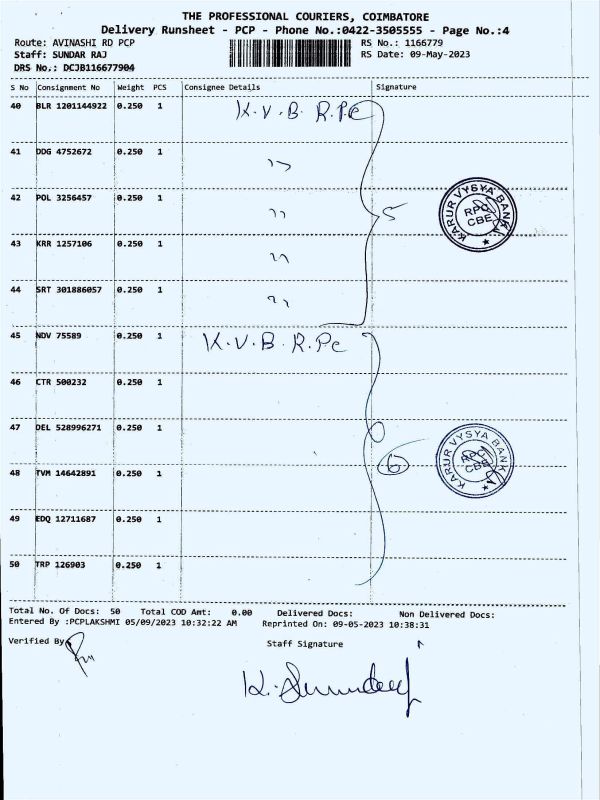 THE PROFESSIONAL COURIERS, COIMBATORE
Delivery Runsheet - PCP - Phone No.:0422-3505555 - Page No.:4
Route: AVINASHI RD PCP RS No.: 1166779
Staff: SUNDAR RAJ RS Date: 09-May-2023
DRS No.: DCJB116677904
S No Consignment No Weight PCS Consignee Details Signature
40 BLR 1201144922 0.250 1 K.V.B. R.P.C
41 DDG 4752672 0.250 1 ,,
42 POL 3256457 0.250 1 ,, 5
KARUR VYSYA BANK
RPC
CBE
43 KRR 1257106 0.250 1 ,,
44 SRT 301886057 0.250 1 ,,
45 NDV 75589 0.250 1 K.V.B.R.Pc
46 CTR 500232 0.250 1
47 DEL 528996271 0.250 1
6
KARUR VYSYA BANK
RPC
CBE
48 TVM 14642891 0.250 1
49 EDQ 12711687 0.250 1
50 TRP 126903 0.250 1
Total No. Of Docs: 50 Total COD Amt: 0.00 Delivered Docs: Non Delivered Docs:
Entered By :PCPLAKSHMI 05/09/2023 10:32:22 AM Reprinted On: 09-05-2023 10:38:31
Verified By Staff Signature